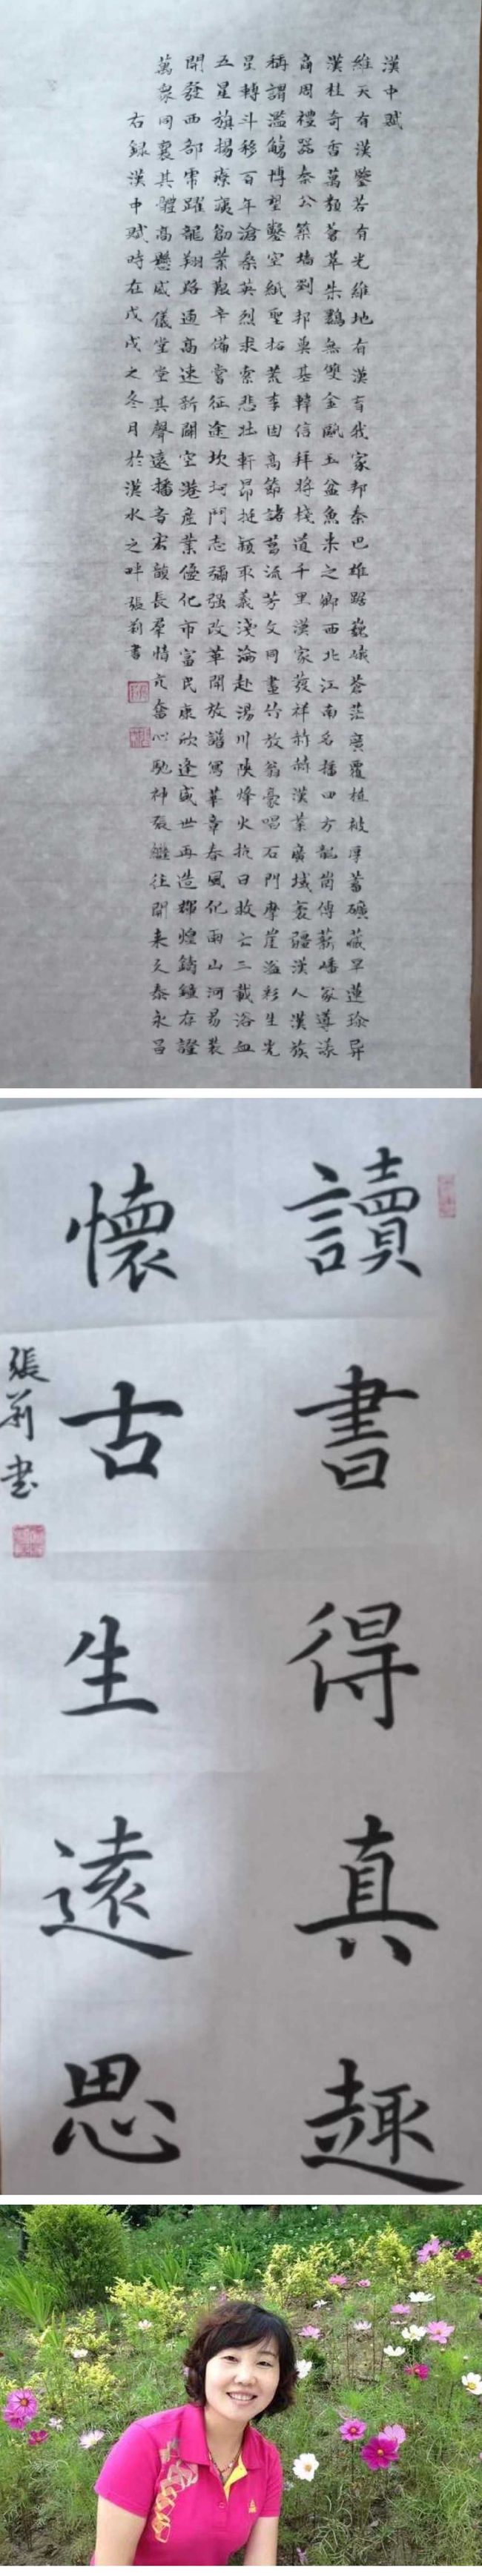 漢中賦
維天有漢鑒若有光維地有漢育我家邦秦巴雄踞巍峨蒼茫廣覆植被厚蓄礦藏旱蓮珍异
漢桂奇香萬類薈萃朱鹮無雙金甌玉盆魚米之鄉西北江南名播四方龍崗傳薪嶓冢導漾
商周禮器秦公築墻劉邦奠基韓信拜將棧道千里漢家發祥赫赫漢業廣域袤疆漢人漢族
稱謂濫觴博望鑿空紙聖拓荒李固高節諸葛流芳文同畫竹放翁豪唱石門摩崖溢彩生光
星轉斗移百年滄桑英烈求索悲壯軒昂挺穎取義淺淪赴湯川陝烽火抗日救亡二載浴血
五星旗揚療痍創業艱辛備嘗征途坎坷鬥志彌强改革開放譜寫華章春風化雨山河易裝
開發西部虎躍龍翔路通高速新闢空港產業優化市富民康欣逢盛世再造輝煌鑄鐘存證
萬眾同襄其體高懸威儀堂堂其聲遠播音宏韻長群情亢奮心馳神張繼往開來久泰永昌
右錄漢中賦時在戊戌之冬月於漢水之畔張莉書
讀書得真趣
懷古生遠思
張莉書